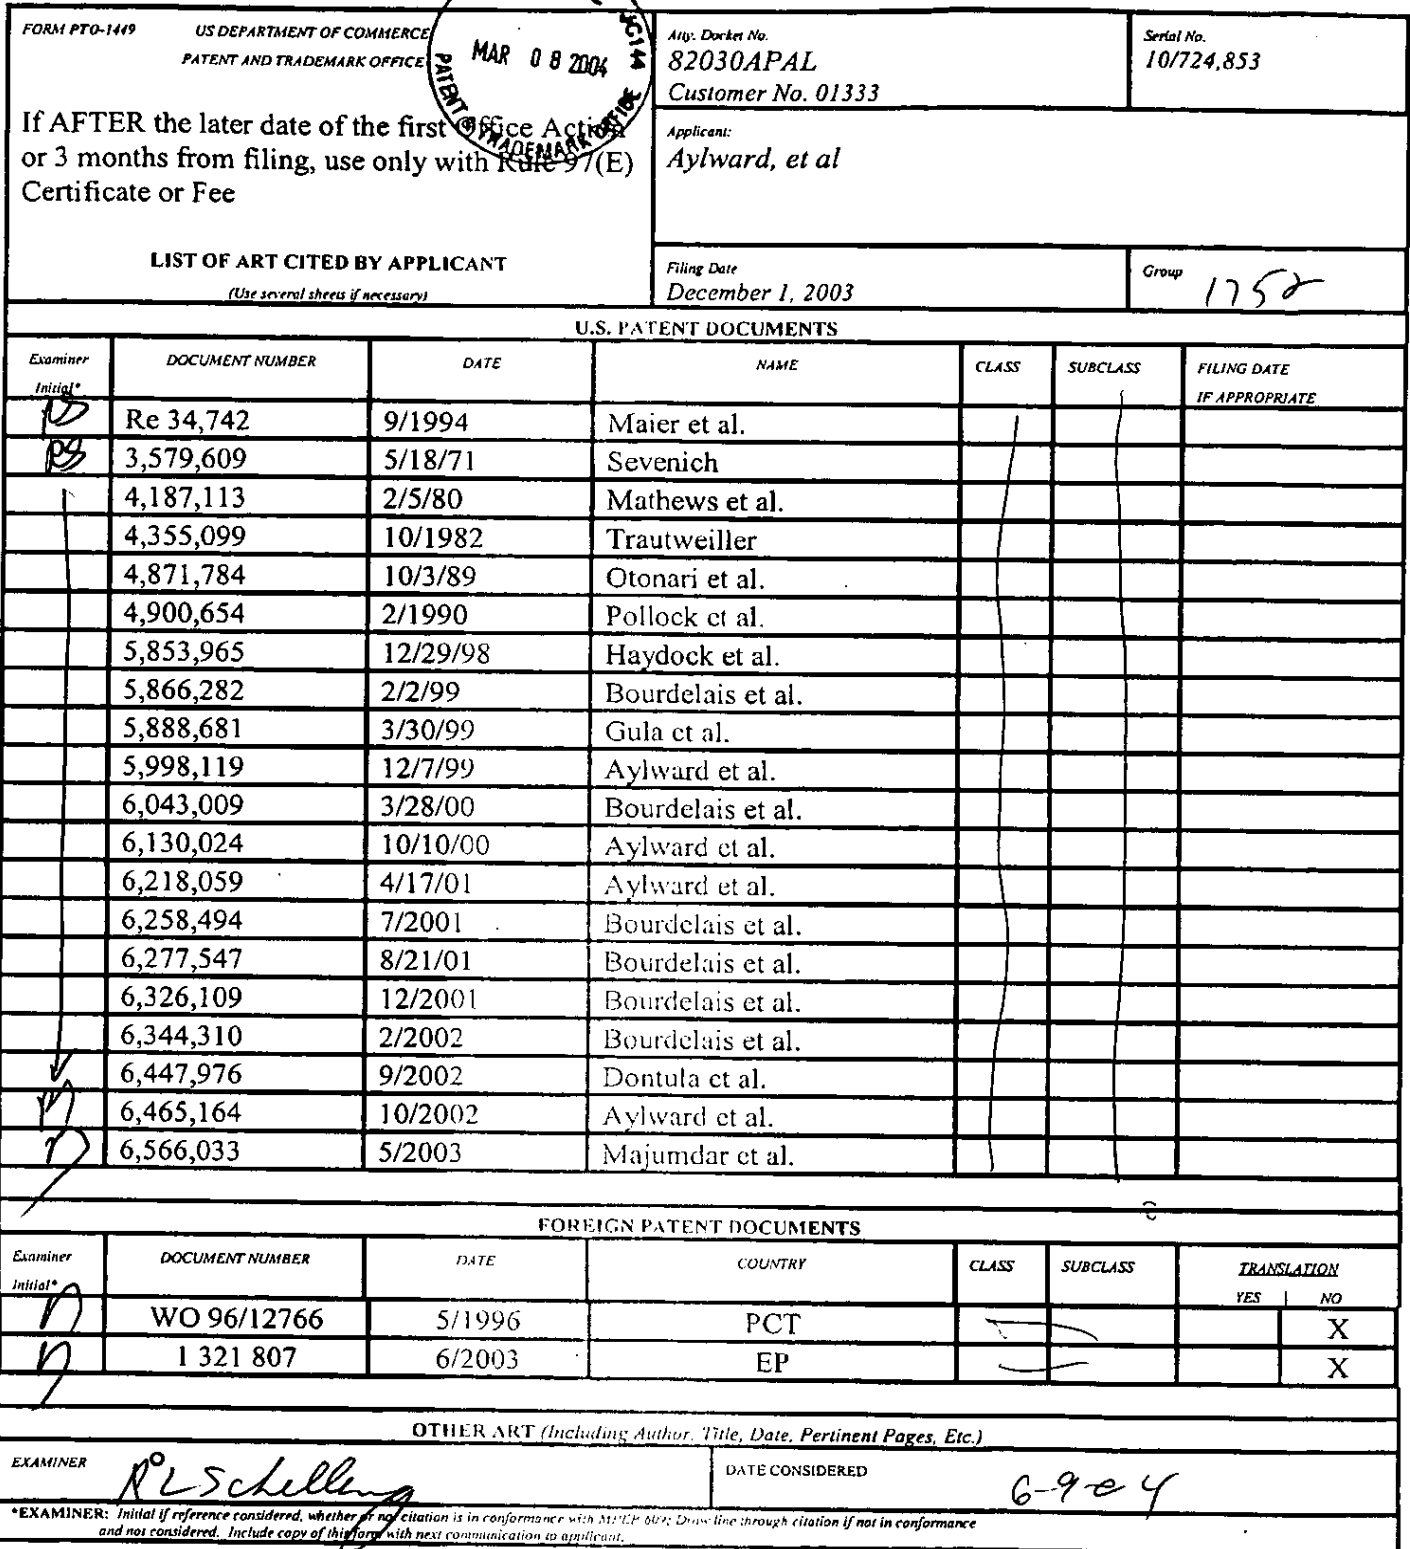 FORM PTO-1449 US DEPARTMENT OF COMMERCE
PATENT AND TRADEMARK OFFICE
MAR 0 8 2004
JC144
PATENT & TRADEMARK OFFICE
Atty. Docket No.
82030APAL
Customer No. 01333
Serial No.
10/724,853
If AFTER the later date of the first Office Action
or 3 months from filing, use only with Rule 97(E)
Certificate or Fee
Applicant:
Aylward, et al
LIST OF ART CITED BY APPLICANT
(Use several sheets if necessary)
Filing Date
December 1, 2003
Group 1752
U.S. PATENT DOCUMENTS
Examiner Initial* DOCUMENT NUMBER DATE NAME CLASS SUBCLASS FILING DATE IF APPROPRIATE
Re 34,742 9/1994 Maier et al.
3,579,609 5/18/71 Sevenich
4,187,113 2/5/80 Mathews et al.
4,355,099 10/1982 Trautweiller
4,871,784 10/3/89 Otonari et al.
4,900,654 2/1990 Pollock et al.
5,853,965 12/29/98 Haydock et al.
5,866,282 2/2/99 Bourdelais et al.
5,888,681 3/30/99 Gula et al.
5,998,119 12/7/99 Aylward et al.
6,043,009 3/28/00 Bourdelais et al.
6,130,024 10/10/00 Aylward et al.
6,218,059 4/17/01 Aylward et al.
6,258,494 7/2001 Bourdelais et al.
6,277,547 8/21/01 Bourdelais et al.
6,326,109 12/2001 Bourdelais et al.
6,344,310 2/2002 Bourdelais et al.
6,447,976 9/2002 Dontula et al.
6,465,164 10/2002 Aylward et al.
6,566,033 5/2003 Majumdar et al.
FOREIGN PATENT DOCUMENTS
Examiner Initial* DOCUMENT NUMBER DATE COUNTRY CLASS SUBCLASS TRANSLATION
YES | NO
WO 96/12766 5/1996 PCT X
1 321 807 6/2003 EP X
OTHER ART (Including Author, Title, Date, Pertinent Pages, Etc.)
EXAMINER R L Schilling DATE CONSIDERED 6-9-04
*EXAMINER: Initial if reference considered, whether or not citation is in conformance with MPEP 609; Draw line through citation if not in conformance
and not considered. Include copy of this form with next communication to applicant.